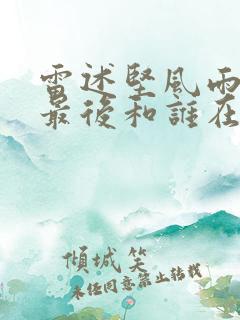 雷述堅風雨
最後和誰在
傾城笑
未經同意禁止轉載